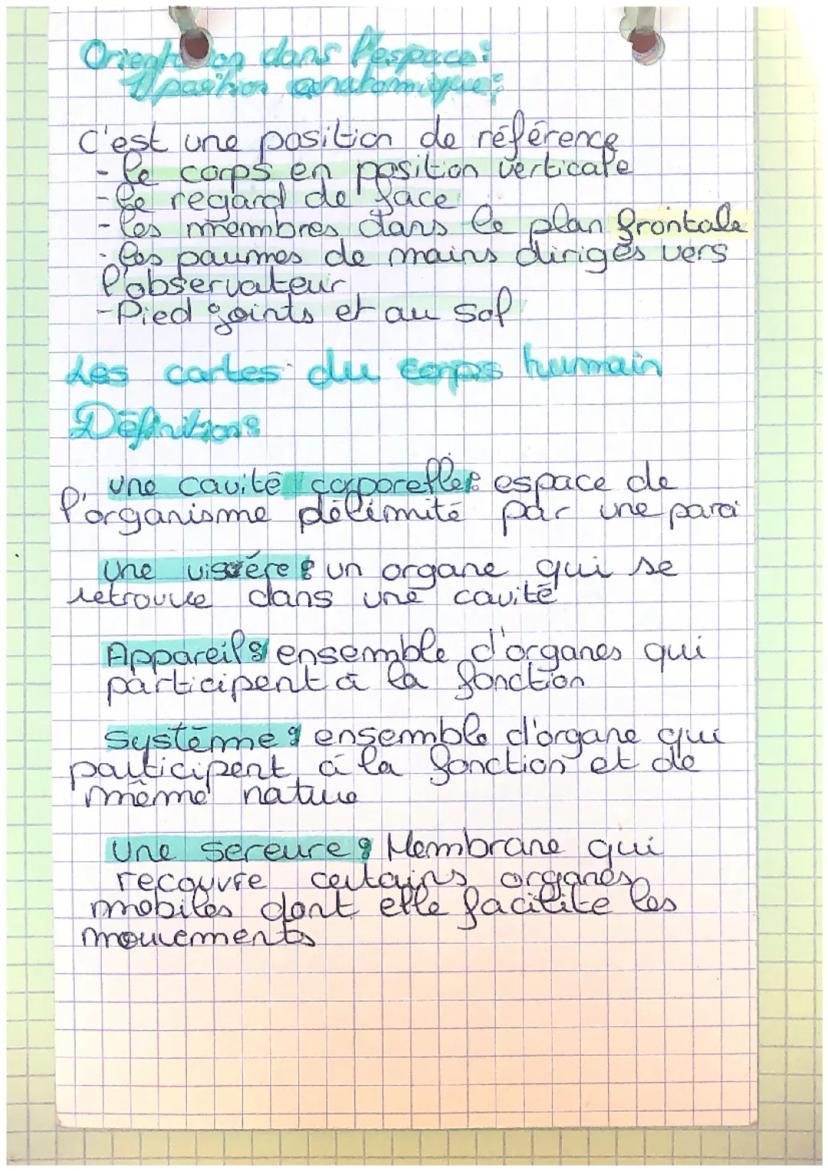 Orientation dans l'espace:
1) position anatomique:
C'est une position de référence
- le corps en position verticale
- le regard de face
- les membres dans le plan frontale
- les paumes de mains dirigés vers
l'observateur
- Pied joints et au sol
Les cartes du corps humain
Définitions
une cavité corporelle: espace de
l'organisme délimité par une paroi
Une viscère: un organe qui se
retrouve dans une cavité
Appareil: ensemble d'organes qui
participent à la fonction
Système: ensemble d'organe qui
participent à la fonction et de
même nature
Une sereure: Membrane qui
recouvre certains organes
mobiles dont elle facilite les
mouvements